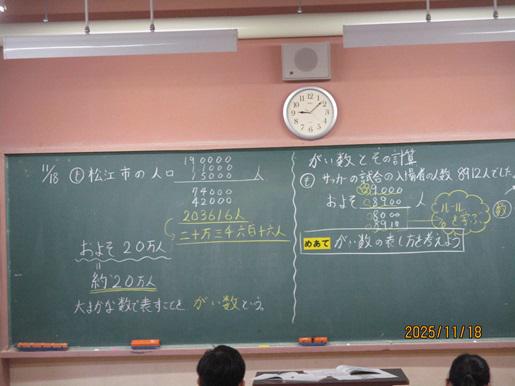 11/18 ㋣ 松江市の人口
190000
11000
15000 人
74000
42000
203616人
二十万三千六百十六人
およそ20万人
〃
約20万人
大まかな数で表すことを がい数という。
がい数とその計算
㋲ サッカーの試合の入場者の人数 8912人でした。
9000
およそ 8900 人
8000
8910
ルールを
めあて がい数の表し方を考えよう
2025/11/18